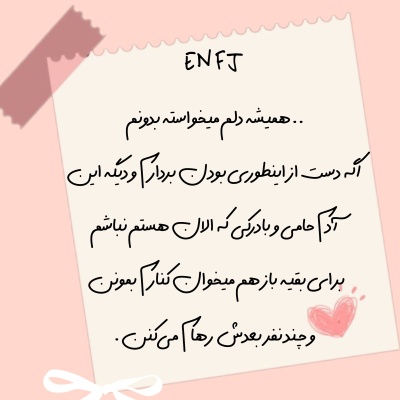 ENFJ
..همیشه دلم میخواسته بدونم
اگه دست از اینطوری بودن بردارم و دیگه این
آدم حامی و بادرکی که الان هستم نباشم
برای بقیه باز هم میخوان کنارم بمونن
و چند نفر بعدش رهام می‌کنن.